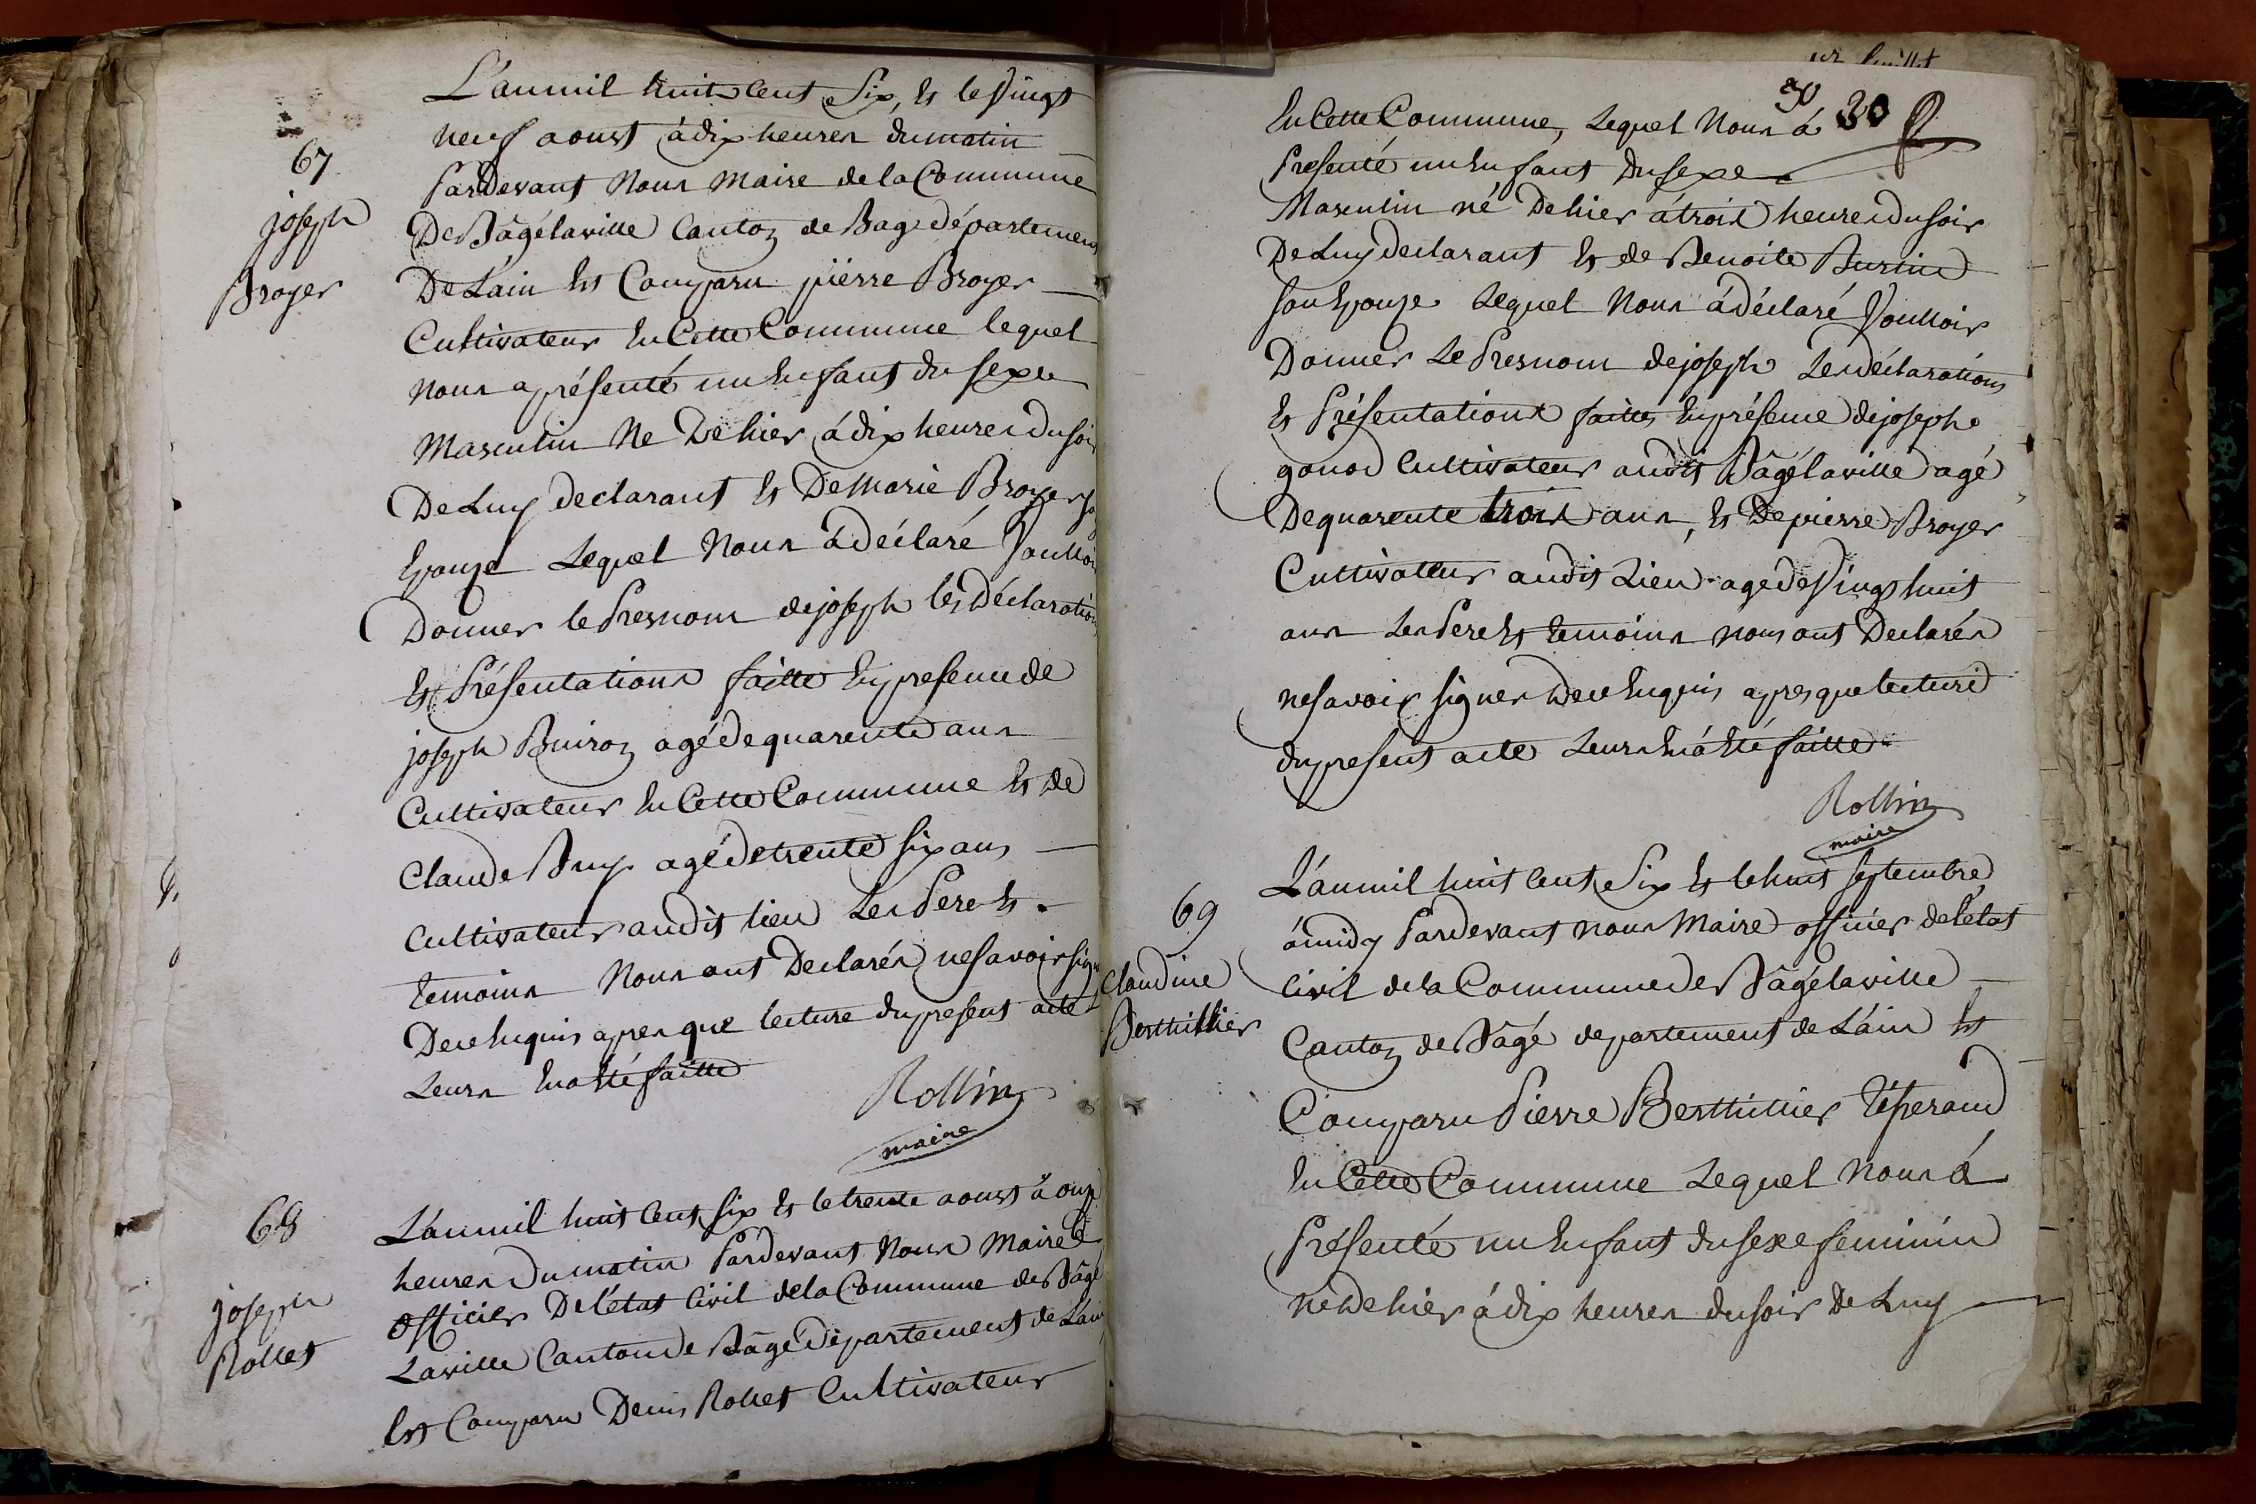 L'an mil huit cent Six, et le vingt
neuf aoust à dix heures du matin
Pardevant Nous Maire de la Commune
De Bâgélaville Canton de Bagé département
De L'ain Est Comparu pierre Broyer
Cultivateur En Cette Commune lequel
nous a présenté un Enfant du sexe
Masculin Né De hier à dix heures du soir
De Luy declarant et De Marie Broyer so
Epouze Lequel Nous à déclaré Voulloir
Donner le Presnom de joseph les Déclaration
Et Présentations faitte En presence de
joseph Buiron agé de quarente ans
Cultivateur En Cette Commune Et de
Claude Buy agé de trente six ans
Cultivateur audit lieu Les Pere Et
temoins Nous ont Declarés ne savoir sign
De ce Enquis apres que lecture du present acte
Leurs En a Eté faitte
Rollin
maire
67
joseph
Broyer
68
joseph
Rollet
L'an mil huit cent six et le trente aoust à onze
heures Du matin Pardevant Nous Maire Et
officier De L'état Civil de la Commune de Bâgé
Laville Canton De Bâgé Département de L'ain
Est Comparu Denis Rollet Cultivateur
30 30
En Cette Commune, Lequel Nous à
Presenté un Enfant Du sexe
Masculin né De hier à trois heures du soir
De Luy declarant Et de Benoite Burtin
son Epouze Lequel Nous à déclaré Voulloir
Donner Le Presnom de joseph Les déclarations
Et Présentations faittes En présence de joseph
gonod Cultivateur audit Bâgélaville agé
De quarente trois ans, Et De pierre Broyer
Cultivateur audit Lieu agé de Vingt huit
ans Les Pere Et temoins nous ont Declarés
ne savoir signer De ce Enquis apres que lecture
du present acte Leurs En à Eté faitte
Rollin
maire
69
Claudine
Berthillier
L'an mil huit cent Six Et le huit septembre
à midy Pardevant nous Maire officier de l'état
Civil de la Commune de Bâgélaville
Canton de Bâgé departement de L'ain Est
Comparu Pierre Berthillier Tisserand
En Cette Commune Lequel Nous à
Présenté un Enfant du sexe feminin
né De hier à dix heures du soir De Luy